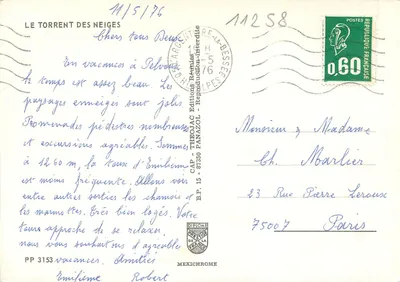 11/5/76
11258
LE TORRENT DES NEIGES
Chers tous Deux,
En vacances à Pelvoux
le temps est assez beau. Les
paysages enneigés sont jolis.
Promenades pédestres nombreuses
et excursions agréables. Sommes
à 1260 m, la tour d'
est moins fréquentée. Allons voir
entre autres sorties les chamois et
les marmottes. Très bien logés. Votre
tour approche de se relaxer,
nous vous souhaitons d'agréables
vacances. Amitiés
Robert
PP 3153
CAP - THEOJAC Editions
B.P. 15 - 87350 PANAZOL - Reproduction interdite
MEXICHROME
L'ARGENTIERE-LA-BESSEE
1976
POSTES
0,60
REPUBLIQUE FRANÇAISE
Monsieur & Madame
Ch. Marlier
23 Rue Pierre Leroux
75007 Paris